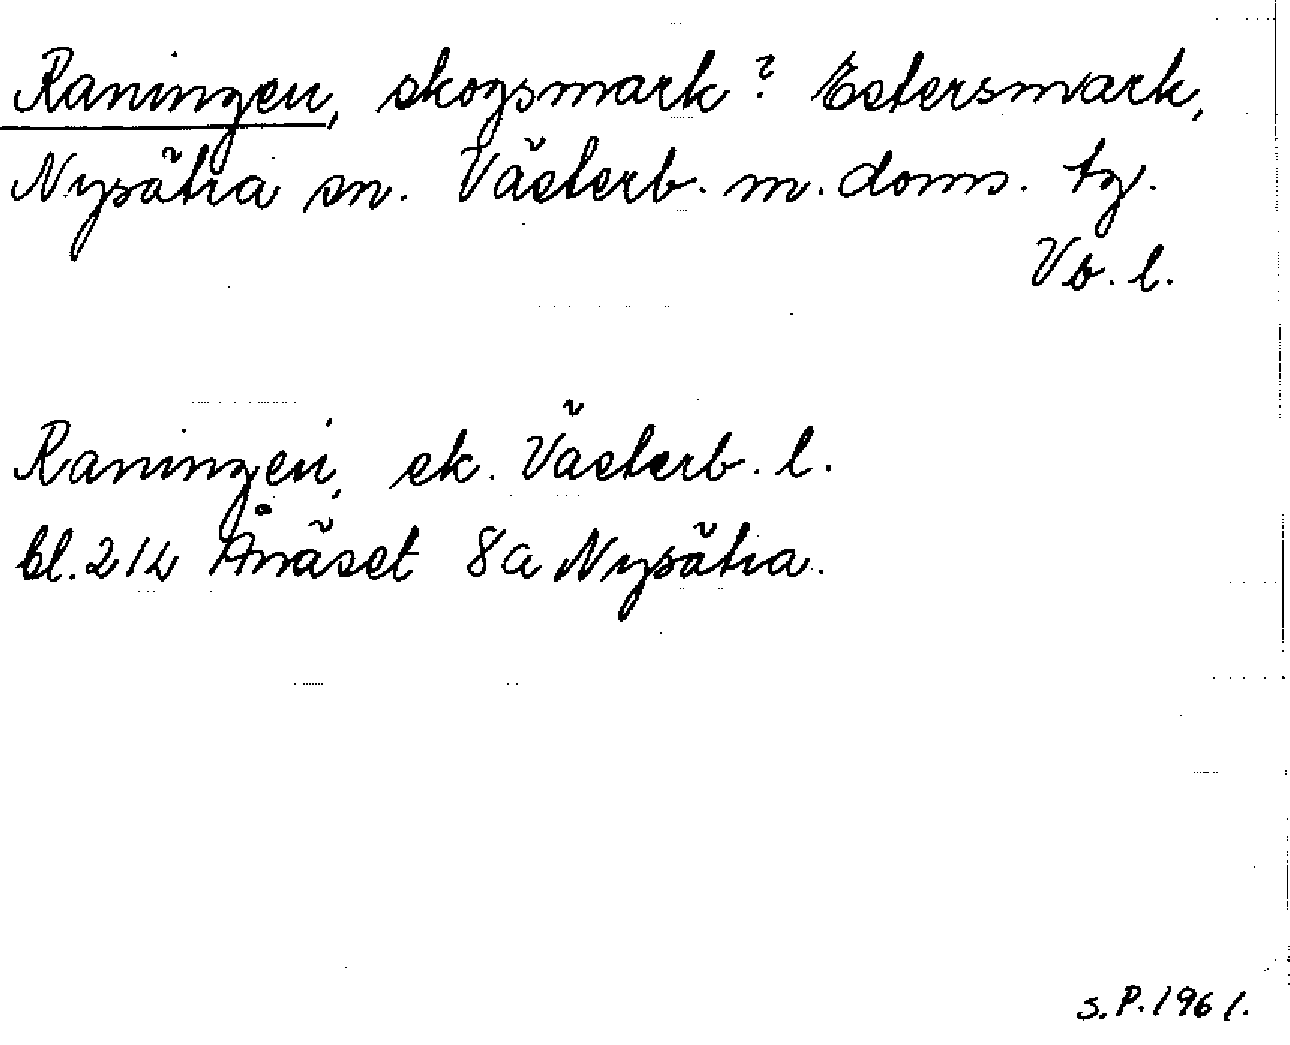 Raningen, skogsmark? Estersmark,
Nysätra sn. Västerb. m. doms. tg.
Vb. l.
Raningen, ek. Västerb. l.
bl. 21L Ånäset 8a Nysätra.
S.P.1961.